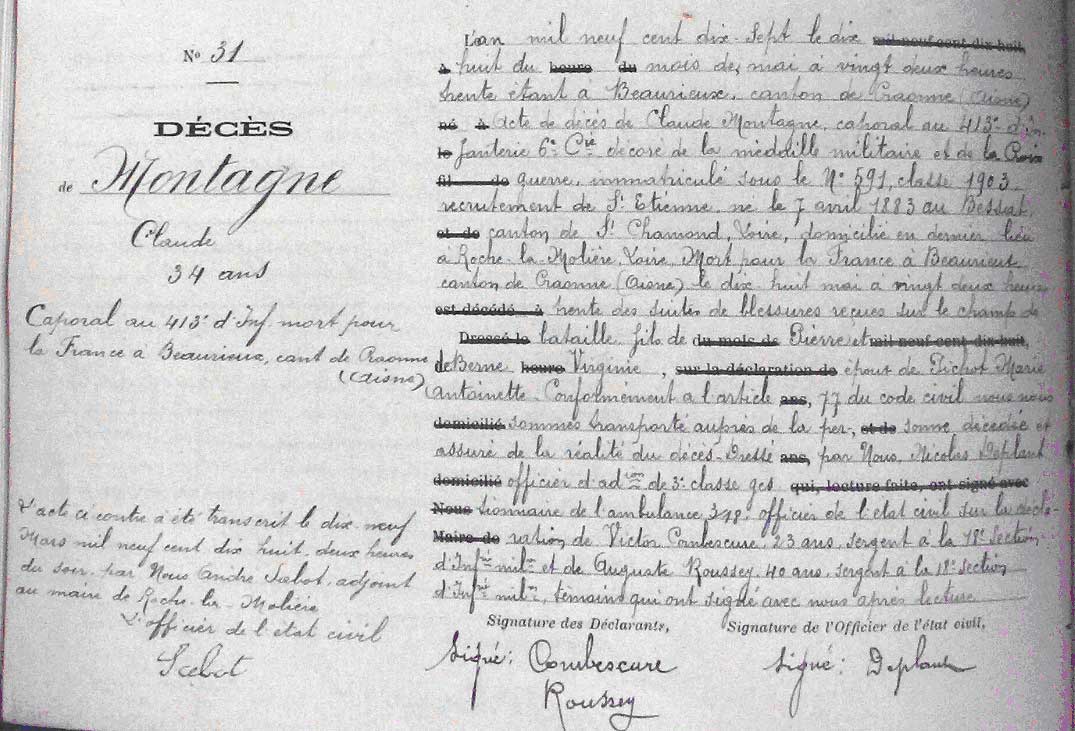 N° 31
DÉCÈS
de Montagne
Claude
34 ans
Caporal au 413e d'Inf. mort pour
la France à Beaurieux, cant de Craonne
(Aisne)
L'acte ci contre a été transcrit le dix-neuf
Mars mil neuf cent dix huit, deux heures
du soir, par Nous André Scebot, adjoint
au maire de Roche-la-Molière
L'officier de l'état civil
Scebot
L'an mil neuf cent dix-sept le dix mil neuf cent dix-huit,
à huit du heure du mois de, mai à vingt deux heures
trente étant à Beaurieux, canton de Craonne (Aisne)
né à Acte de décès de Claude Montagne, caporal au 413e d'in-
le fanterie 6e Cie décoré de la médaille militaire et de la Croix
fil de guerre, immatriculé sous le N° 591, classe 1903
recrutement de St Etienne, né le 7 avril 1883 au Bessat,
et de canton de St Chamond, Loire, domicilié en dernier lieu
à Roche-la-Molière, Loire, Mort pour la France à Beaurieux
canton de Craonne (Aisne) le dix-huit mai à vingt deux heures
est décédé à trente des suites de blessures reçues sur le champ de
Dressé le bataille, fils de du mois de Pierre et mil neuf cent dix-huit,
de Berne heure Virginie, sur la déclaration de époux de Pichot Marie
Antoinette. Conformément à l'article ans, 77 du code civil nous nous
domicilié sommes transporté auprès de la per-, et de sonne décédée et
assuré de la réalité du décès. Dressé ans, par Nous, Nicolas Deplant
domicilié officier d'adon de 3e classe ges qui, lecture faite, ont signé avec
Nous tionnaire de l'ambulance 3/18, officier de l'état civil sur la décla-
Maire de ration de Victor Combescure, 23 ans, sergent à la 18e section
d'Infre milre et de Auguste Roussey, 40 ans, sergent à la 18e section
d'Infre milre, témoins qui ont signé avec nous après lecture
Signature des Déclarants, Signature de l'Officier de l'état civil,
Signé: Combescure Signé: Deplant
Roussey